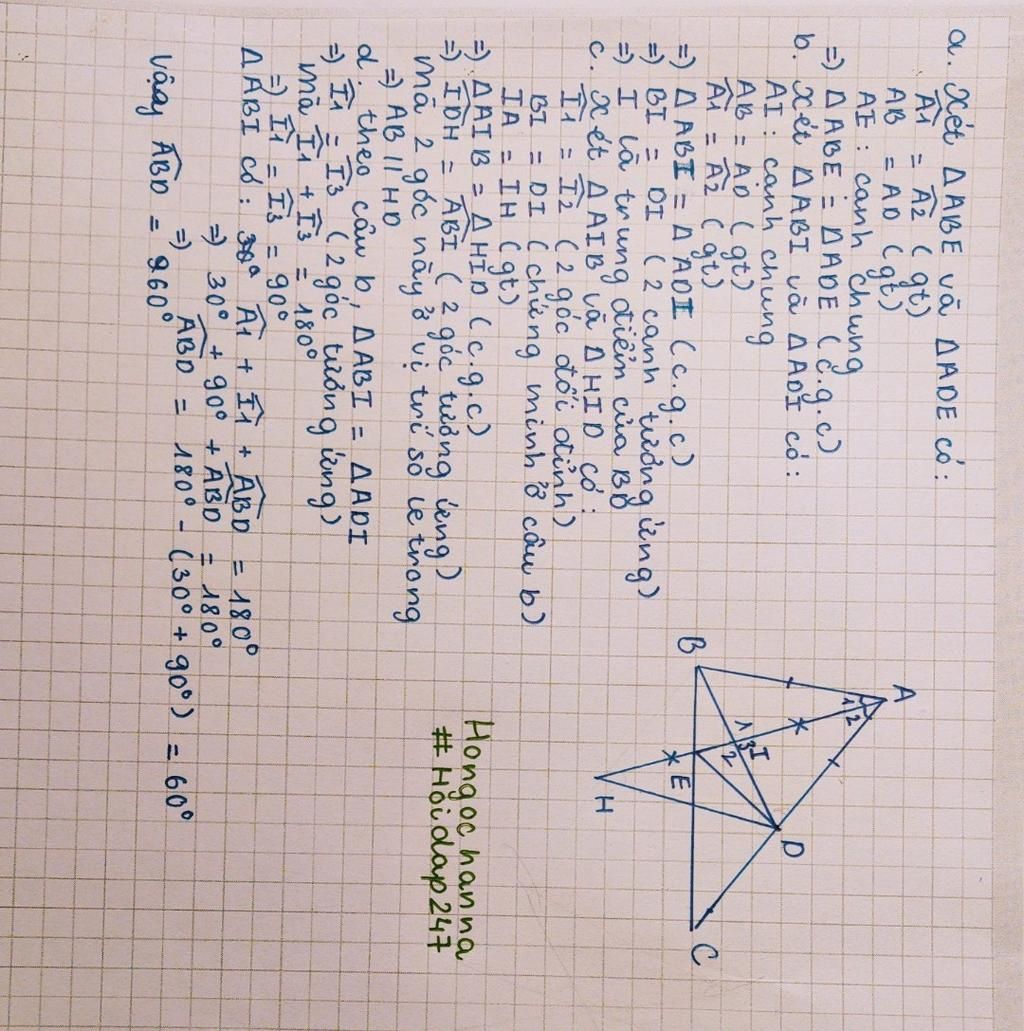 a. Xét ΔABE và ΔADE có:
Â1 = Â2 (gt)
AB = AD (gt)
AE: cạnh chung
=) ΔABE = ΔADE (c.g.c)
b. Xét ΔABI và ΔADI có:
AI: cạnh chung
AB = AD (gt)
Â1 = Â2 (gt)
=) ΔABI = ΔADI (c.g.c)
=) BI = DI (2 cạnh tương ứng)
=) I là trung điểm của BD
c. Xét ΔAIB và ΔHID có:
Î1 = Î2 (2 góc đối đỉnh)
BI = DI (chứng minh ở câu b)
IA = IH (gt)
=) ΔAIB = ΔHID (c.g.c)
=) IDH = ABI (2 góc tương ứng)
mà 2 góc này ở vị trí so le trong
=) AB // HD
d. theo câu b, ΔABI = ΔADI
=) Î1 = Î3 (2 góc tương ứng)
mà Î1 + Î3 = 180°
=) Î1 = Î3 = 90°
ΔABI có: Â1 + Î1 + ABD = 180°
=) 30° + 90° + ABD = 180°
=) ABD = 180° - (30° + 90°) = 60°
Vậy ABD = 960°
A
1 2
B
1 3 I
2
D
E
H
C
Hongochanna
#Hoidap247